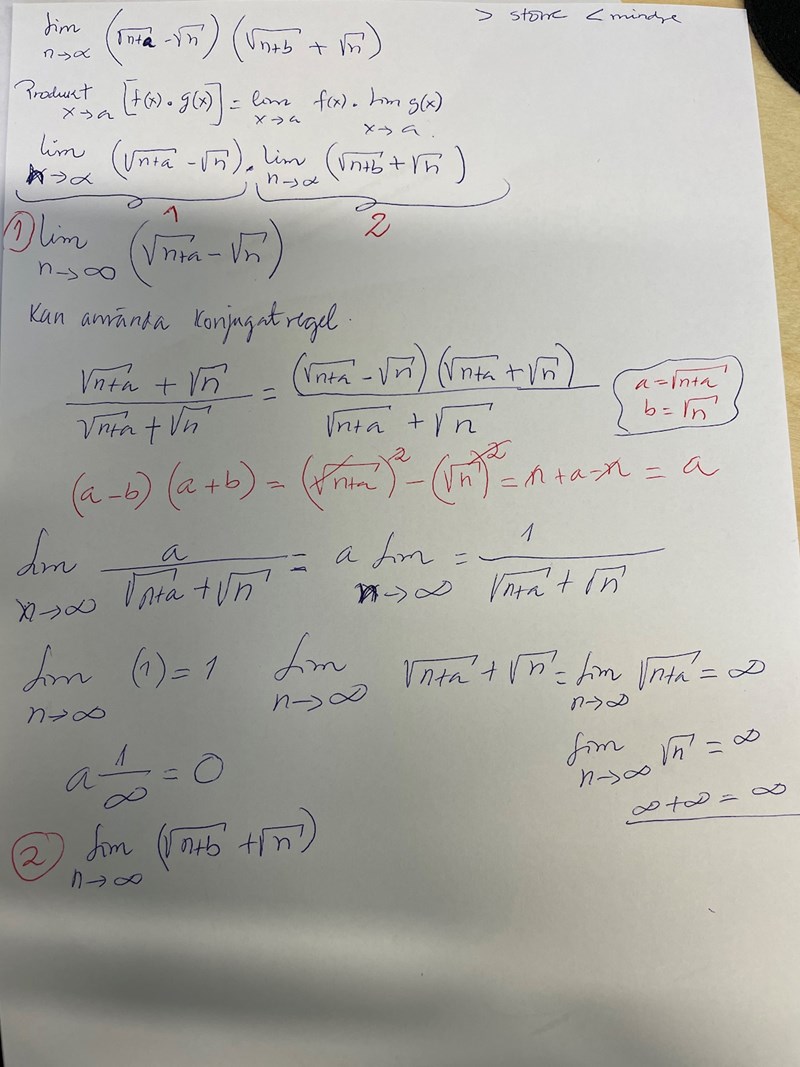 > större < mindre
lim n→∝ (√n+a - √n) (√n+b + √n)
Produkt x→a [f(x) · g(x)] = lim x→a f(x) · lim x→a g(x)
lim n→∝ (√n+a - √n) · lim n→∝ (√n+b + √n)
1 2
① lim n→∞ (√n+a - √n)
Kan använda konjugatregel.
√n+a + √n / √n+a + √n = (√n+a - √n) (√n+a + √n) / √n+a + √n
a = √n+a
b = √n
(a-b) (a+b) = (√n+a)² - (√n)² = n + a - n = a
lim n→∞ a / √n+a + √n = a lim n→∞ = 1 / √n+a + √n
lim n→∞ (1) = 1 lim n→∞ √n+a + √n = lim n→∞ √n+a = ∞
lim n→∞ √n = ∞
a 1/∞ = 0
∞ + ∞ = ∞
② lim n→∞ (√n+b + √n)